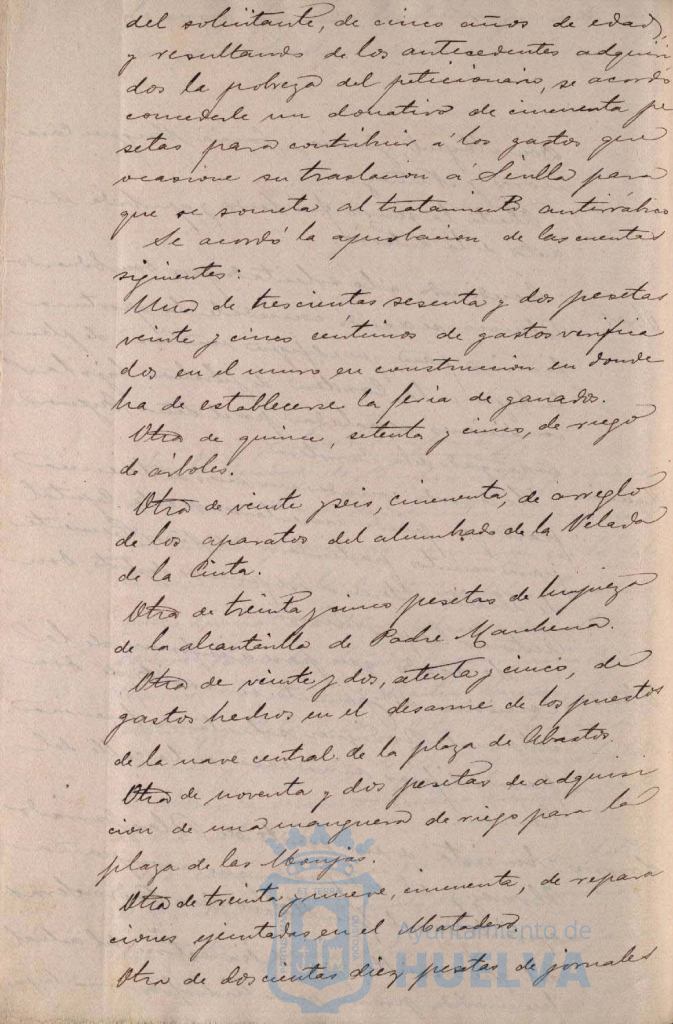 del solicitante, de cinco años de edad,
y resultando de los antecedentes adquiri
dos la pobreza del peticionario, se acordó
concederle un donativo de cincuenta pe
setas para contribuir á los gastos que
ocasione su traslacion á Sevilla para
que se someta al tratamiento antirrábico
Se acordó la aprobacion de las cuentas
siguientes:
Una de trescientas sesenta y dos pesetas
veinte y cinco céntimos de gastos verifica
dos en el muro en construccion en donde
ha de establecerse la feria de ganados.
Otra de quince, setenta y cinco, de riego
de árboles.
Otra de veinte y seis, cincuenta, de arreglo
de los aparatos del alumbrado de la Velada
de la Cinta.
Otra de treinta y cinco pesetas de limpieza
de la alcantarilla de Padre Marchena.
Otra de veinte y dos, setenta y cinco, de
gastos hechos en el desarme de los puestos
de la nave central de la plaza de Abastos.
Otra de noventa y dos pesetas de adquisi
cion de una manguera de riego para la
plaza de las Monjas.
Otra de treinta y nueve, cincuenta, de repara
ciones ejecutadas en el Matadero.
Otra de doscientas diez pesetas de jornales
Ayuntamiento de
HUELVA